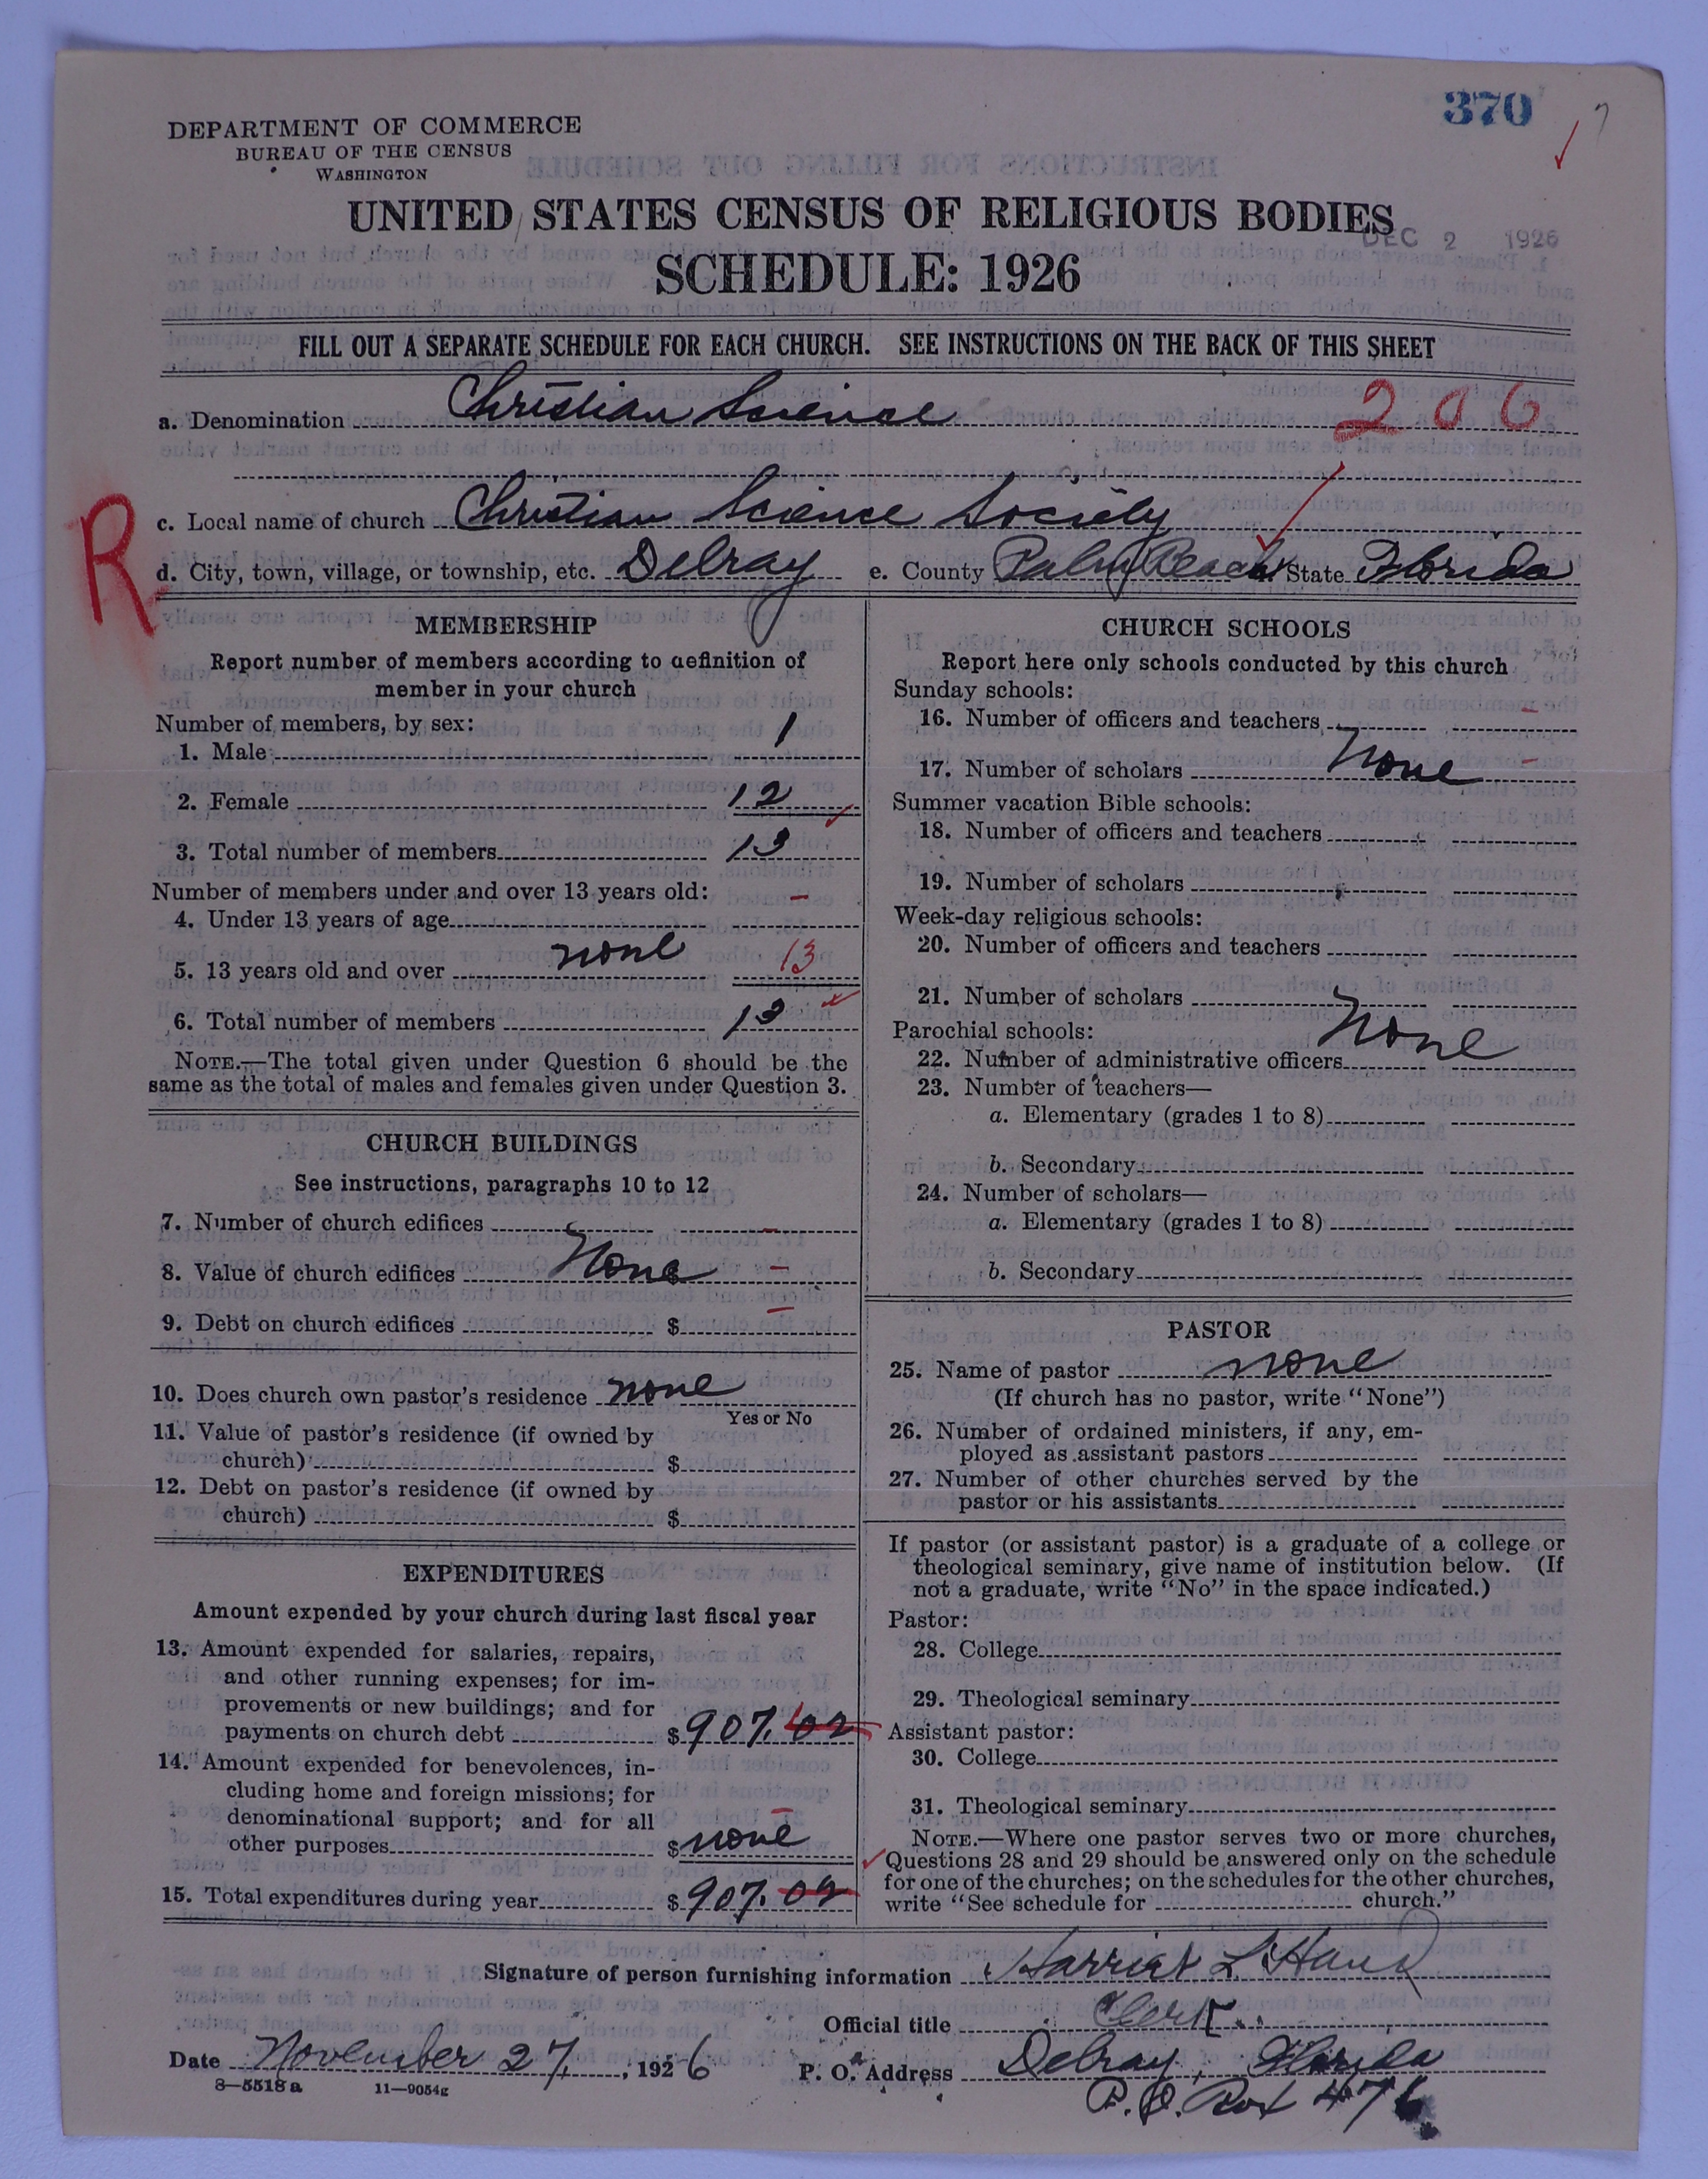 370
DEPARTMENT OF COMMERCE
BUREAU OF THE CENSUS
WASHINGTON
UNITED STATES CENSUS OF RELIGIOUS BODIES
DEC 2 1926
SCHEDULE: 1926
FILL OUT A SEPARATE SCHEDULE FOR EACH CHURCH. SEE INSTRUCTIONS ON THE BACK OF THIS SHEET
a. Denomination Christian Science 206
R
c. Local name of church Christian Science Society
d. City, town, village, or township, etc. Delray e. County Palm Beach State Florida
MEMBERSHIP
Report number of members according to definition of
member in your church
Number of members, by sex:
1. Male 1
2. Female 12
3. Total number of members 13
Number of members under and over 13 years old:
4. Under 13 years of age –
5. 13 years old and over none 13
6. Total number of members 13
NOTE.—The total given under Question 6 should be the
same as the total of males and females given under Question 3.
CHURCH BUILDINGS
See instructions, paragraphs 10 to 12
7. Number of church edifices –
8. Value of church edifices None $ –
9. Debt on church edifices $ –
10. Does church own pastor's residence none
Yes or No
11. Value of pastor's residence (if owned by
church) $
12. Debt on pastor's residence (if owned by
church) $
EXPENDITURES
Amount expended by your church during last fiscal year
13. Amount expended for salaries, repairs,
and other running expenses; for im-
provements or new buildings; and for
payments on church debt $ 907.02
14. Amount expended for benevolences, in-
cluding home and foreign missions; for
denominational support; and for all
other purposes $ none –
15. Total expenditures during year $ 907.02
CHURCH SCHOOLS
Report here only schools conducted by this church
Sunday schools:
16. Number of officers and teachers –
17. Number of scholars None –
Summer vacation Bible schools:
18. Number of officers and teachers
19. Number of scholars
Week-day religious schools:
20. Number of officers and teachers
21. Number of scholars
Parochial schools: None
22. Number of administrative officers
23. Number of teachers—
a. Elementary (grades 1 to 8)
b. Secondary
24. Number of scholars—
a. Elementary (grades 1 to 8)
b. Secondary
PASTOR
25. Name of pastor none
(If church has no pastor, write "None")
26. Number of ordained ministers, if any, em-
ployed as assistant pastors
27. Number of other churches served by the
pastor or his assistants
If pastor (or assistant pastor) is a graduate of a college or
theological seminary, give name of institution below. (If
not a graduate, write "No" in the space indicated.)
Pastor:
28. College
29. Theological seminary
Assistant pastor:
30. College
31. Theological seminary
NOTE.—Where one pastor serves two or more churches,
Questions 28 and 29 should be answered only on the schedule
for one of the churches; on the schedules for the other churches,
write "See schedule for church."
Signature of person furnishing information Harriet L. Hand
Official title Clerk
Date November 27, 1926 P. O. Address Delray, Florida
8—5518a 11—9054g
P.O. Box 476